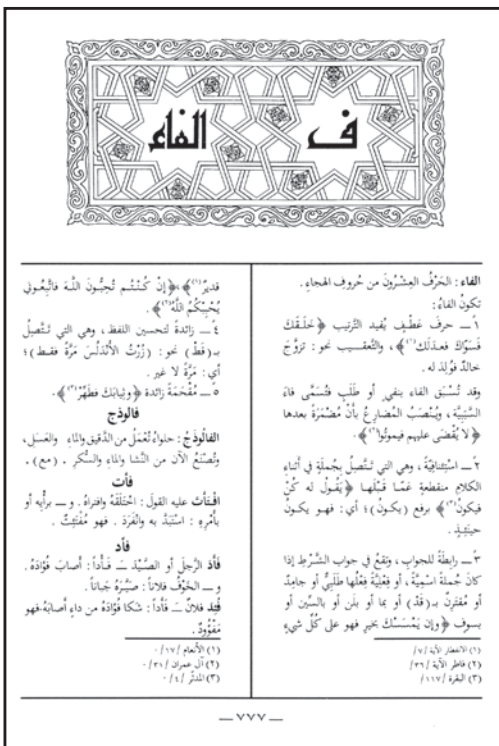 ف
الفاء
الفاء : الحَرْفُ العِشْرُونَ من حُروفِ الهجاءِ .
تكونُ الفاءُ :
١ ــ حرفَ عَطْفٍ يُفيد التَّرتيب ﴿خلَقَكَ
فَسَوّاكَ فعدلَك(١)﴾، والتَّعقـيـب نحو : تزوَّجَ
خالدٌ فوُلِدَ له .
وقد تُسْبَق الفاء بنفيٍ أو طَلَبٍ فتُسمَّى فاءَ
السَّبَبيَّة ، ويُنْصَبُ المُضارعُ بأنْ مُضْمَرةً بعدها
﴿لا يُقْضَى عليهم فيموتُوا(٢)﴾.
٢ ــ اسْتِئنافيَّةً ، وهي التي تـتَّصِلُ بجُملةٍ في أثناءِ
الكلامِ منقطعةٍ عَمَّا قَبْلَها ﴿يَقُول له كُنْ
فيكونُ(٣)﴾ برفع (يكونُ) ؛ أي : فهو يكونُ
حينَئِذٍ .
٣ ــ رابطةً للجوابِ ، وتقعُ في جواب الشَّرْطِ إذا
كانَ جُملةً اسْمِيَّةً ، أو فِعْلِيَّةً فِعْلُها طَلَبيٌّ أو جامِدٌ
أو مُقترِنٌ بـ(قَدْ) أو بما أو بلَن أو بالسِّين أو
بسوف ﴿وإن يَمْسَسْكَ بخيرٍ فهو على كُلِّ شيءٍ
(١) الانفطار الآية /٧/
(٢) فاطر الآية /٣٦/
(٣) البقرة /١١٧/
قديرٌ(١)﴾،﴿إنْ كُـنْـتُـم تُحِبُّونَ اللَّـهَ فاتَّبِعُـوني
يُحْبِبْكُمُ اللَّهُ(٢)﴾ .
٤ ــ زائدةً لتحسين اللفظ ، وهي التي تـتَّصِلُ
بـ(قطْ) نحو : (زُرْتُ الأنْدَلُسَ مَرَّةً فقـط) ؛
أي : مَرَّةً لا غير .
٥ ــ مُقْحَمةً زائدة ﴿وثِيابَكَ فطَهِّرْ(٣)﴾ .
فالوذج
الفالُوذَجُ : حلواءُ تُعْمَلُ من الدَّقيقِ والماءِ والعَسَلِ،
وتُصْنَعُ الآن من النَّشا والماءِ والسُّكّر . (مع) .
فأت
افْـتَـأَتَ عليه القولَ : اخْتَلَقَهُ وافتراهُ . و ــ برأيه أو
بأمْرِهِ : اسْتَبَدَّ به وانْفَرَدَ . فهو مُفْتَئِتٌ .
فأد
فَأَدَ الرَّجلَ أو الصَّـيْـدَ ــَ فَـأْداً : أصابَ فُؤادَهُ .
و ــ الخَوْفُ فلاناً : صَيَّرَهُ جَباناً .
فَئِدَ فلانٌ ــَ فَأَداً : شَكا فُؤادَهُ من داءٍ أصابَهُ،فهو
مَفْؤُودٌ .
(١) الأنعام /١٧/ .
(٢) آل عمران /٣١/ .
(٣) المدثر /٤/ .
— ٧٧٧ —